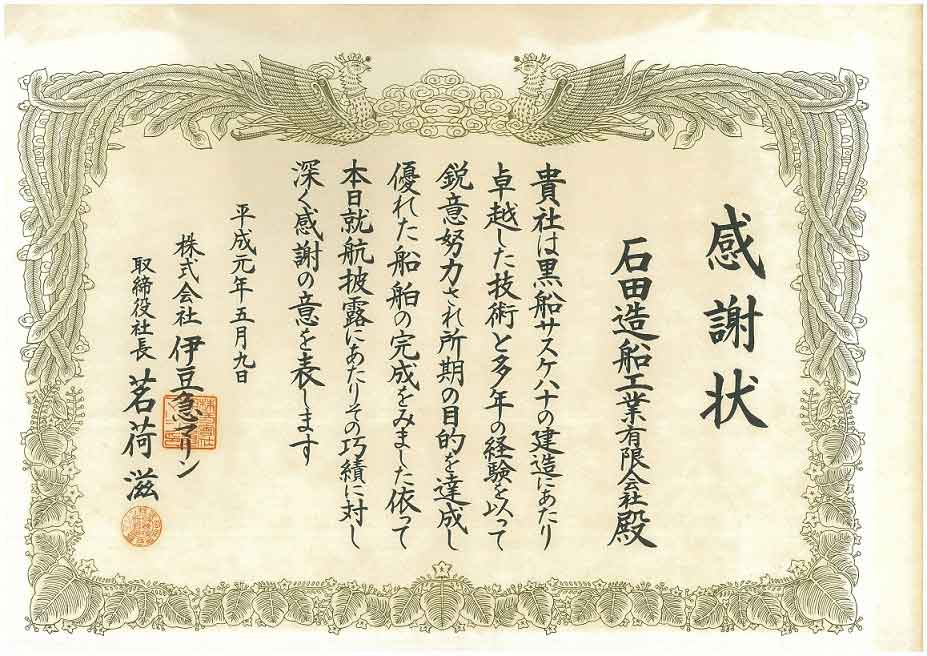 感謝状
石田造船工業有限会社殿
貴社は黒船サスケハナの建造にあたり
卓越した技術と多年の経験を以って
鋭意努力され所期の目的を達成し
優れた船舶の完成をみました依って
本日就航披露にあたりその功績に対し
深く感謝の意を表します
平成元年五月九日
株式会社 伊豆急マリン
取締役社長 茗荷 滋